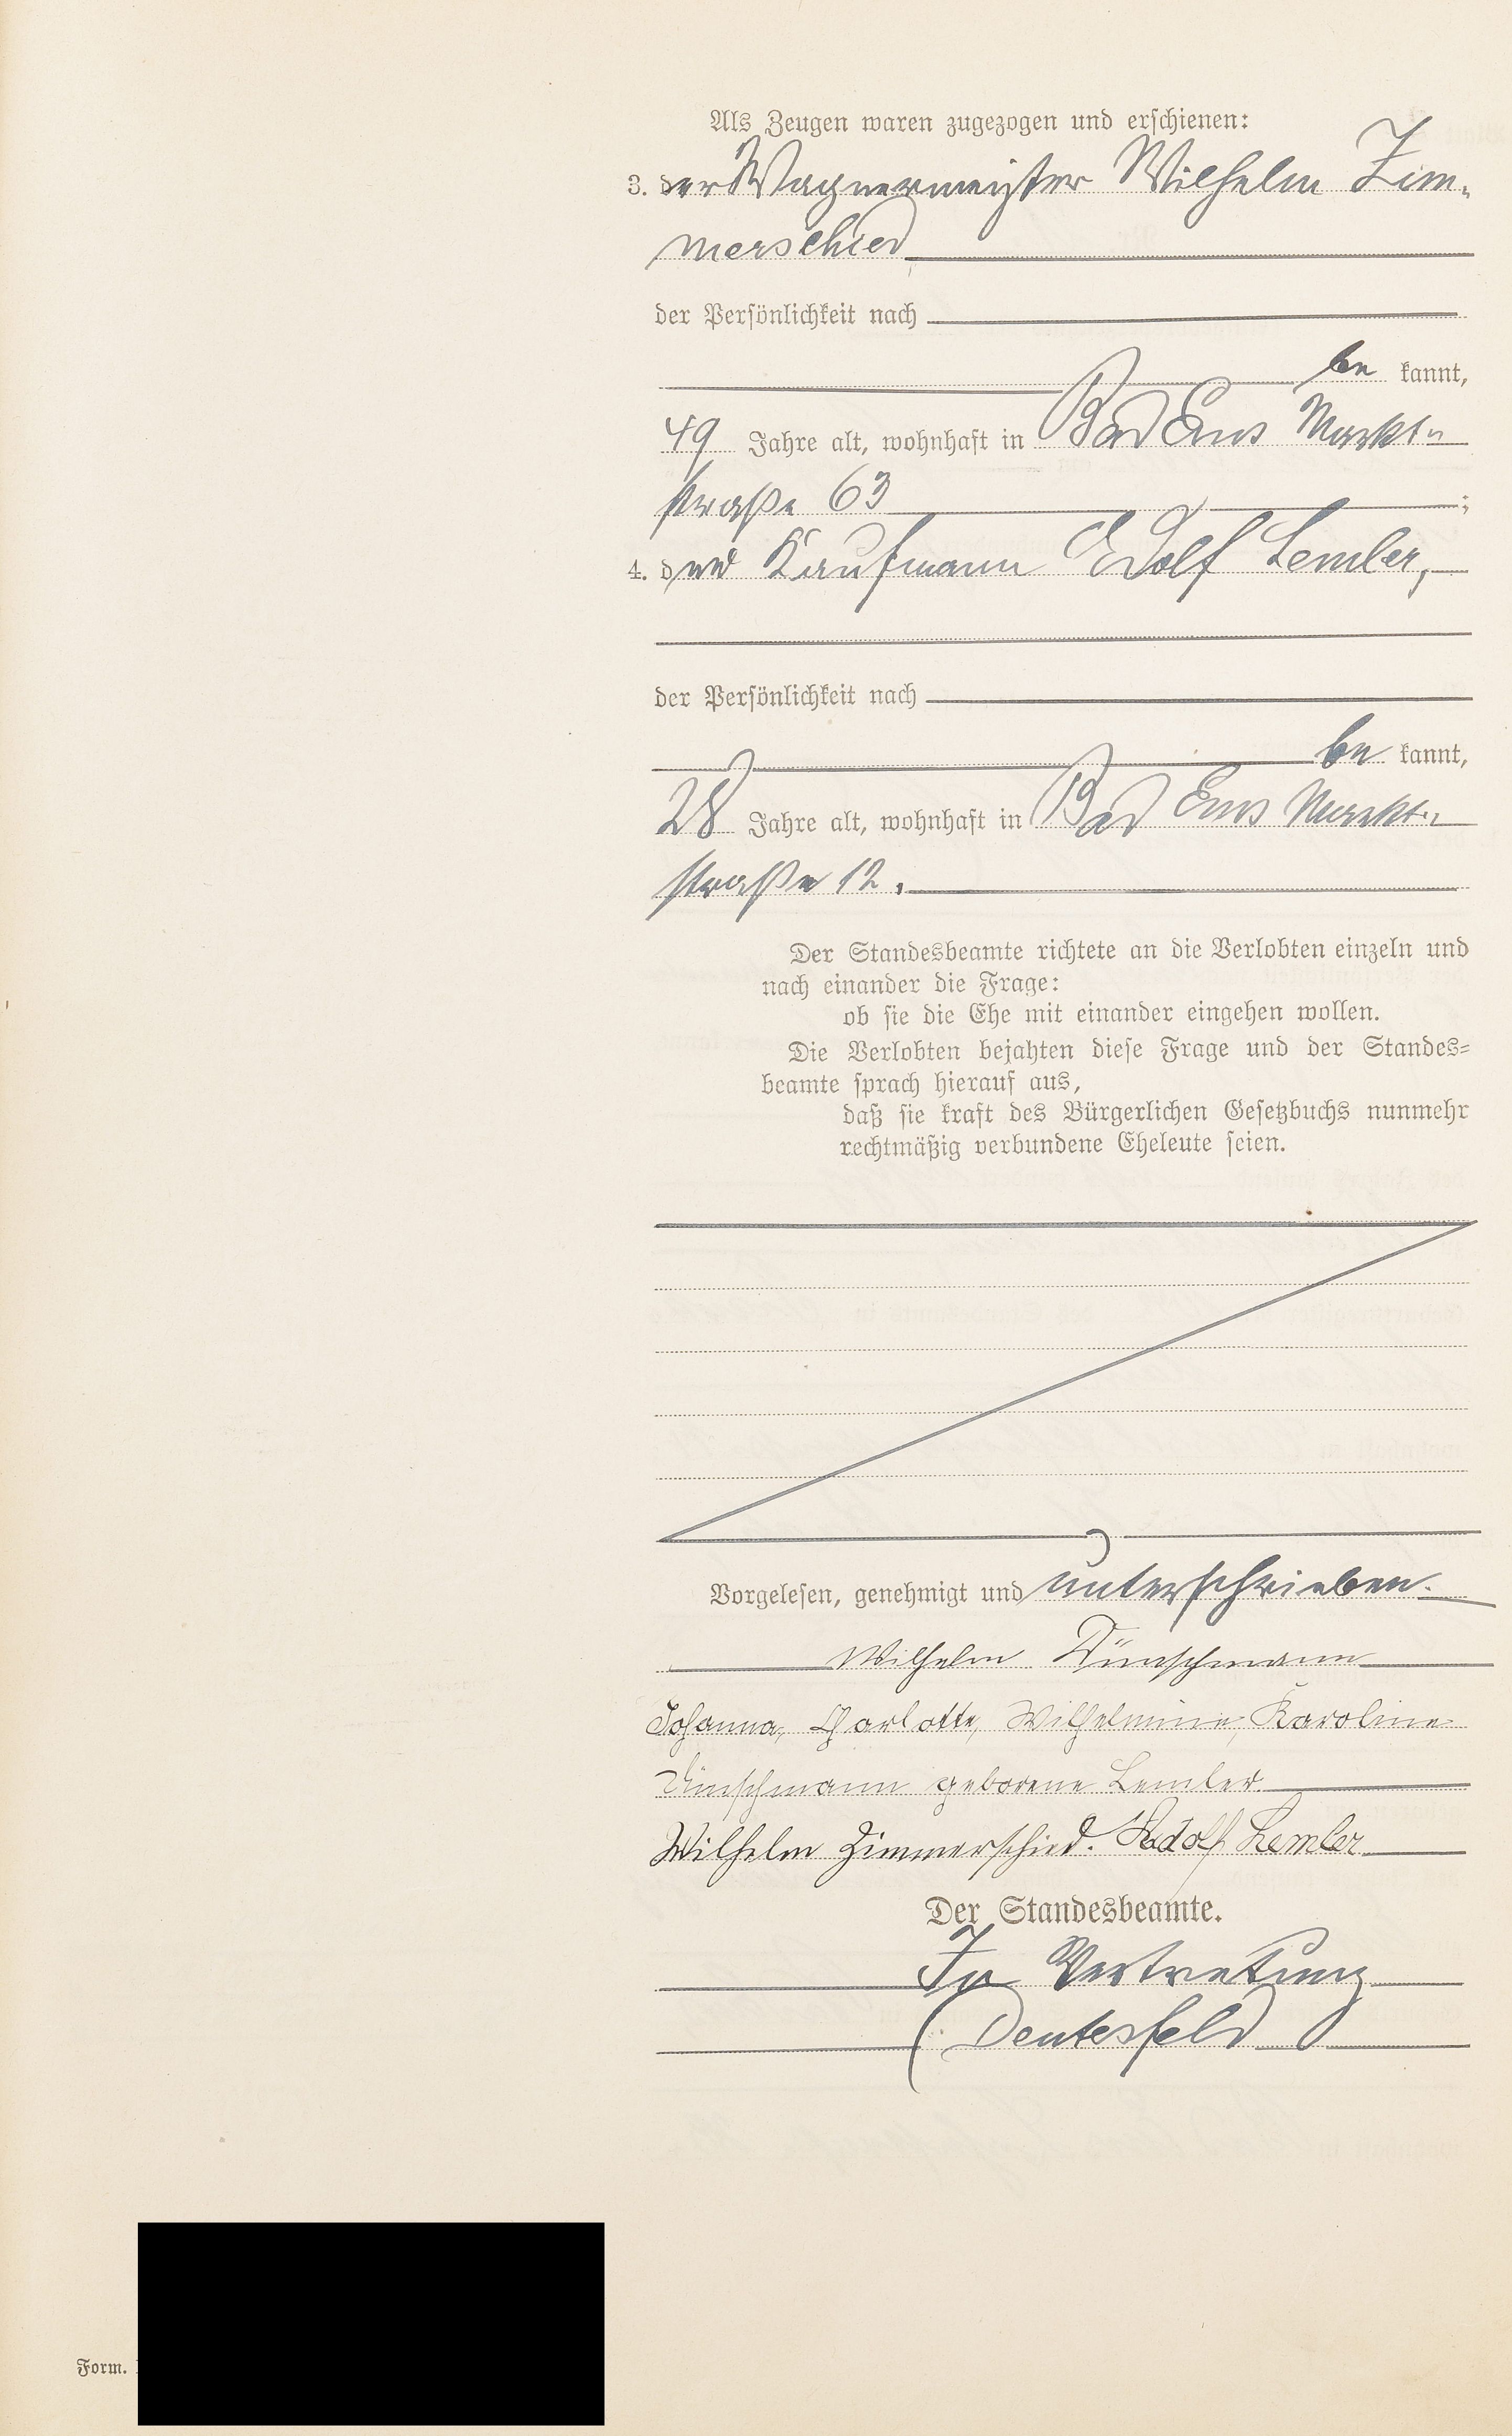 Als Zeugen waren zugezogen und erschienen:
3. der Wagnermeister Wilhelm Zim-
merschied
der Persönlichkeit nach
be kannt,
49 Jahre alt, wohnhaft in Bad Ems Markt-
straße 63 ;
4. der Kaufmann Adolf Lemler,
der Persönlichkeit nach
be kannt,
28 Jahre alt, wohnhaft in Bad Ems Markt-
straße 12.
Der Standesbeamte richtete an die Verlobten einzeln und
nach einander die Frage:
ob sie die Ehe mit einander eingehen wollen.
Die Verlobten bejahten diese Frage und der Standes-
beamte sprach hierauf aus,
daß sie kraft des Bürgerlichen Gesetzbuchs nunmehr
rechtmäßig verbundene Eheleute seien.
Vorgelesen, genehmigt und unterschrieben.
Wilhelm Dünschmann
Johanna, Charlotte, Wilhelmine, Karoline
Dünschmann geborene Lemler.
Wilhelm Zimmerschied. Adolf Lemler
Der Standesbeamte.
In Vertretung
Deutesfeld
Form.